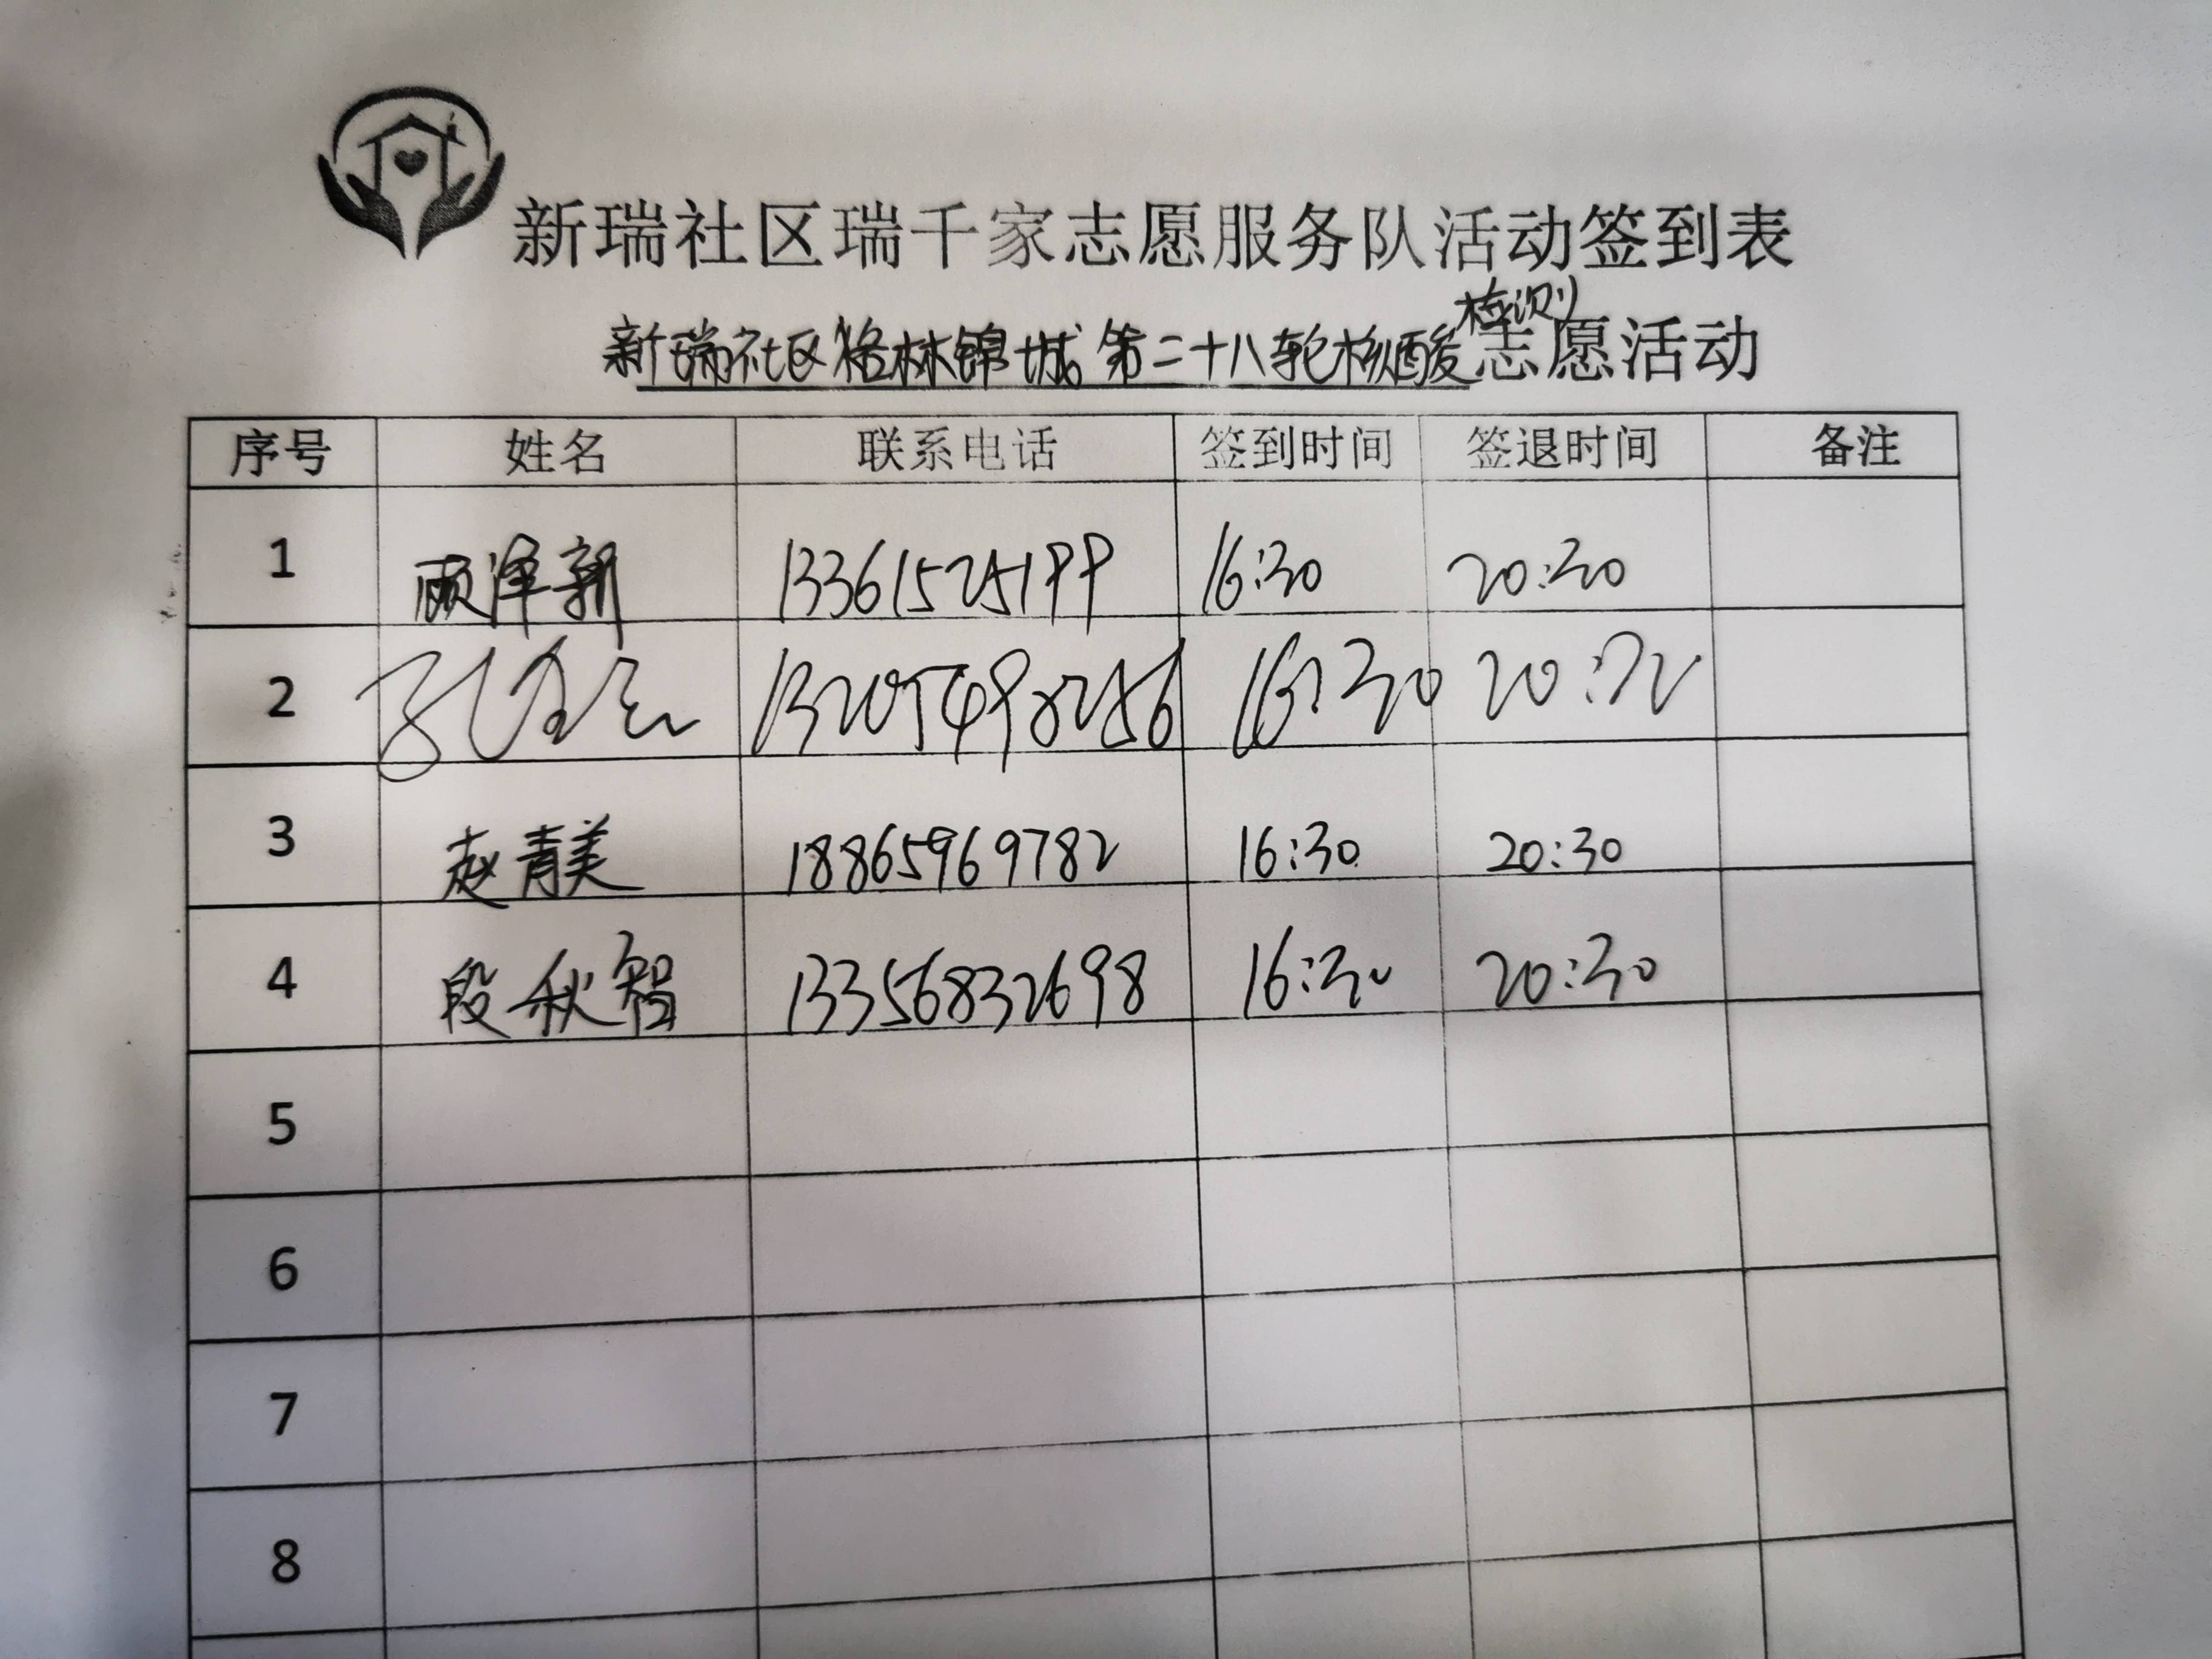 新瑞社区瑞千家志愿服务队活动签到表
检测
新瑞社区格林锦城第二十八轮核酸志愿活动
序号 姓名 联系电话 签到时间 签退时间 备注
1 顾泽新 13361525199 16:30 20:30
2 16:30
3 赵青美 18865969782 16:30 20:30
4 段秋智 13356832698 16:30 20:30
5
6
7
8